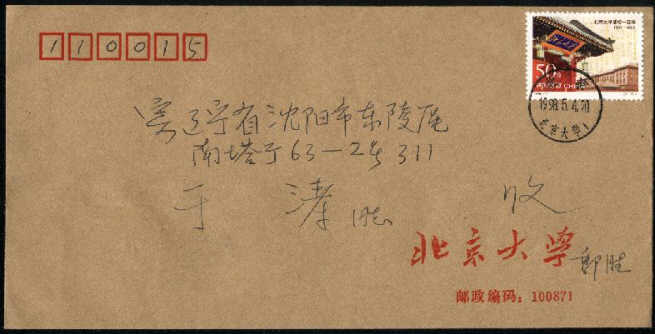 110015
北京大学建校一百年
50分
中国邮政 CHINA
北京
1998.5.4.20
北京大学1
寄辽宁省沈阳市东陵区
南塔子63-2号311
于 涛 收
北京大学 郭胜
邮政编码:100871